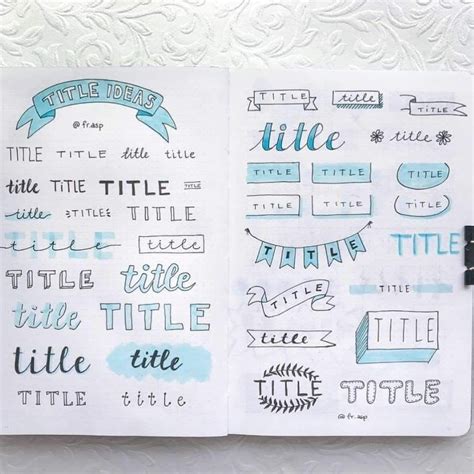 TITLE IDEAS
@fr.asp
TITLE TITLE title title
title TiTLE TITLE TITLE
title TITLE TITLE
title TITLE
TITLE title
title TITLE
title title
TITLE title
TITLE title TITLE
title title
TITLE TITLE TITLE
TITLE TITLE TITLE
TITLE TITLE
TITLE TITLE
title TITLE
TITLE TITLE
@fr.asp